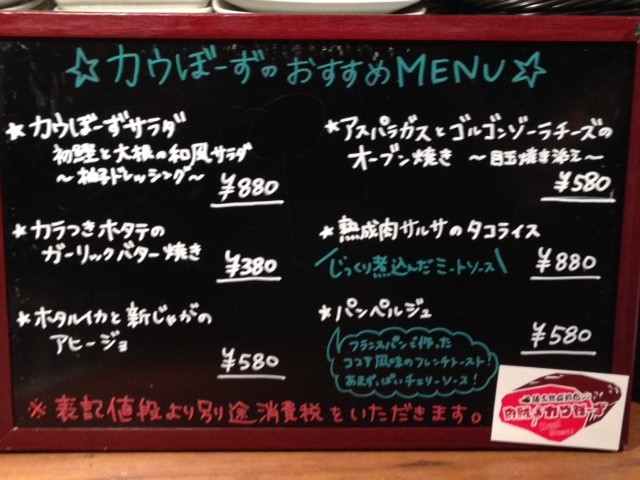 ☆カウぼーずのおすすめMENU☆
★カウぼーずサラダ
初鰹と大根の和風サラダ
～柚子ドレッシング～
¥880
★カラつきホタテの
ガーリックバター焼き
¥380
★ホタルイカと新じゃがの
アヒージョ
¥580
★アスパラガスとゴルゴンゾーラチーズの
オーブン焼き ～目玉焼き添え～
¥580
★熟成肉サルサのタコライス
\じっくり煮込んだミートソース/
¥880
★パンペルジュ
¥580
フランスパンで作った
ココア風味のフレンチトースト!
あまずっぱいチェリーソース!
※表記値段より別途消費税をいただきます。
カウぼーず